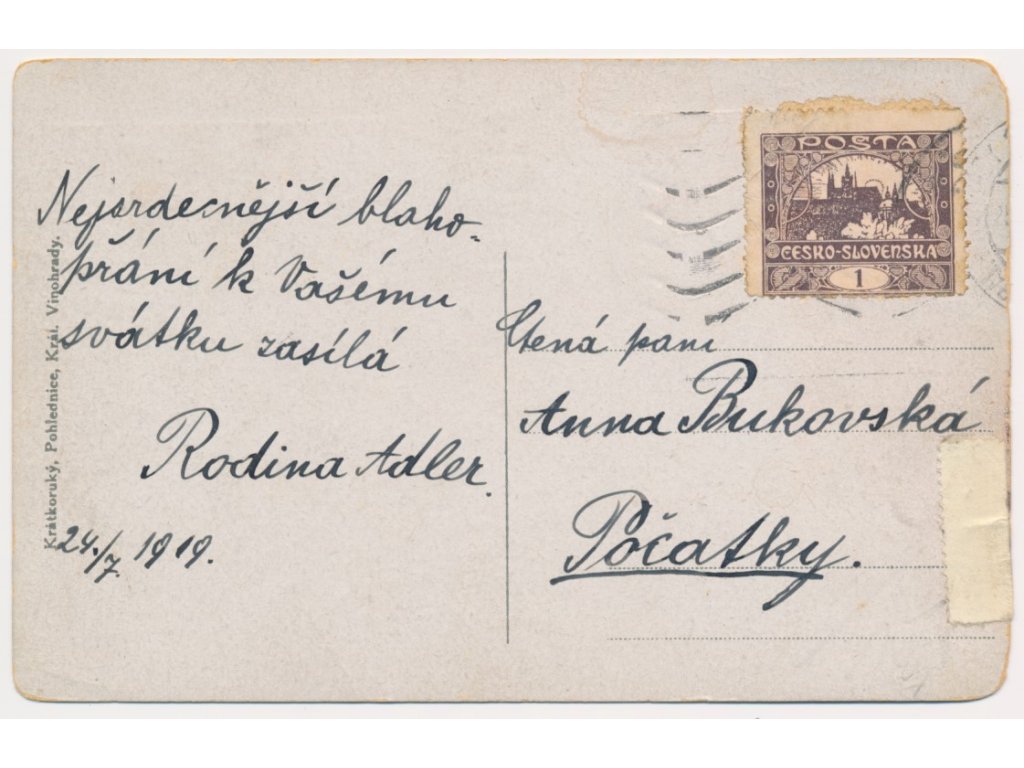 Nejsrdecnější blaho-
přání k Vašému
svátku zasílá
Rodina Adler.
24./7 1919.
Krátkoruký, Pohlednice, Král. Vinohrady.
POŠTA
ČESKO-SLOVENSKA
1
Ctená paní
Anna Bukovská
Počatky.